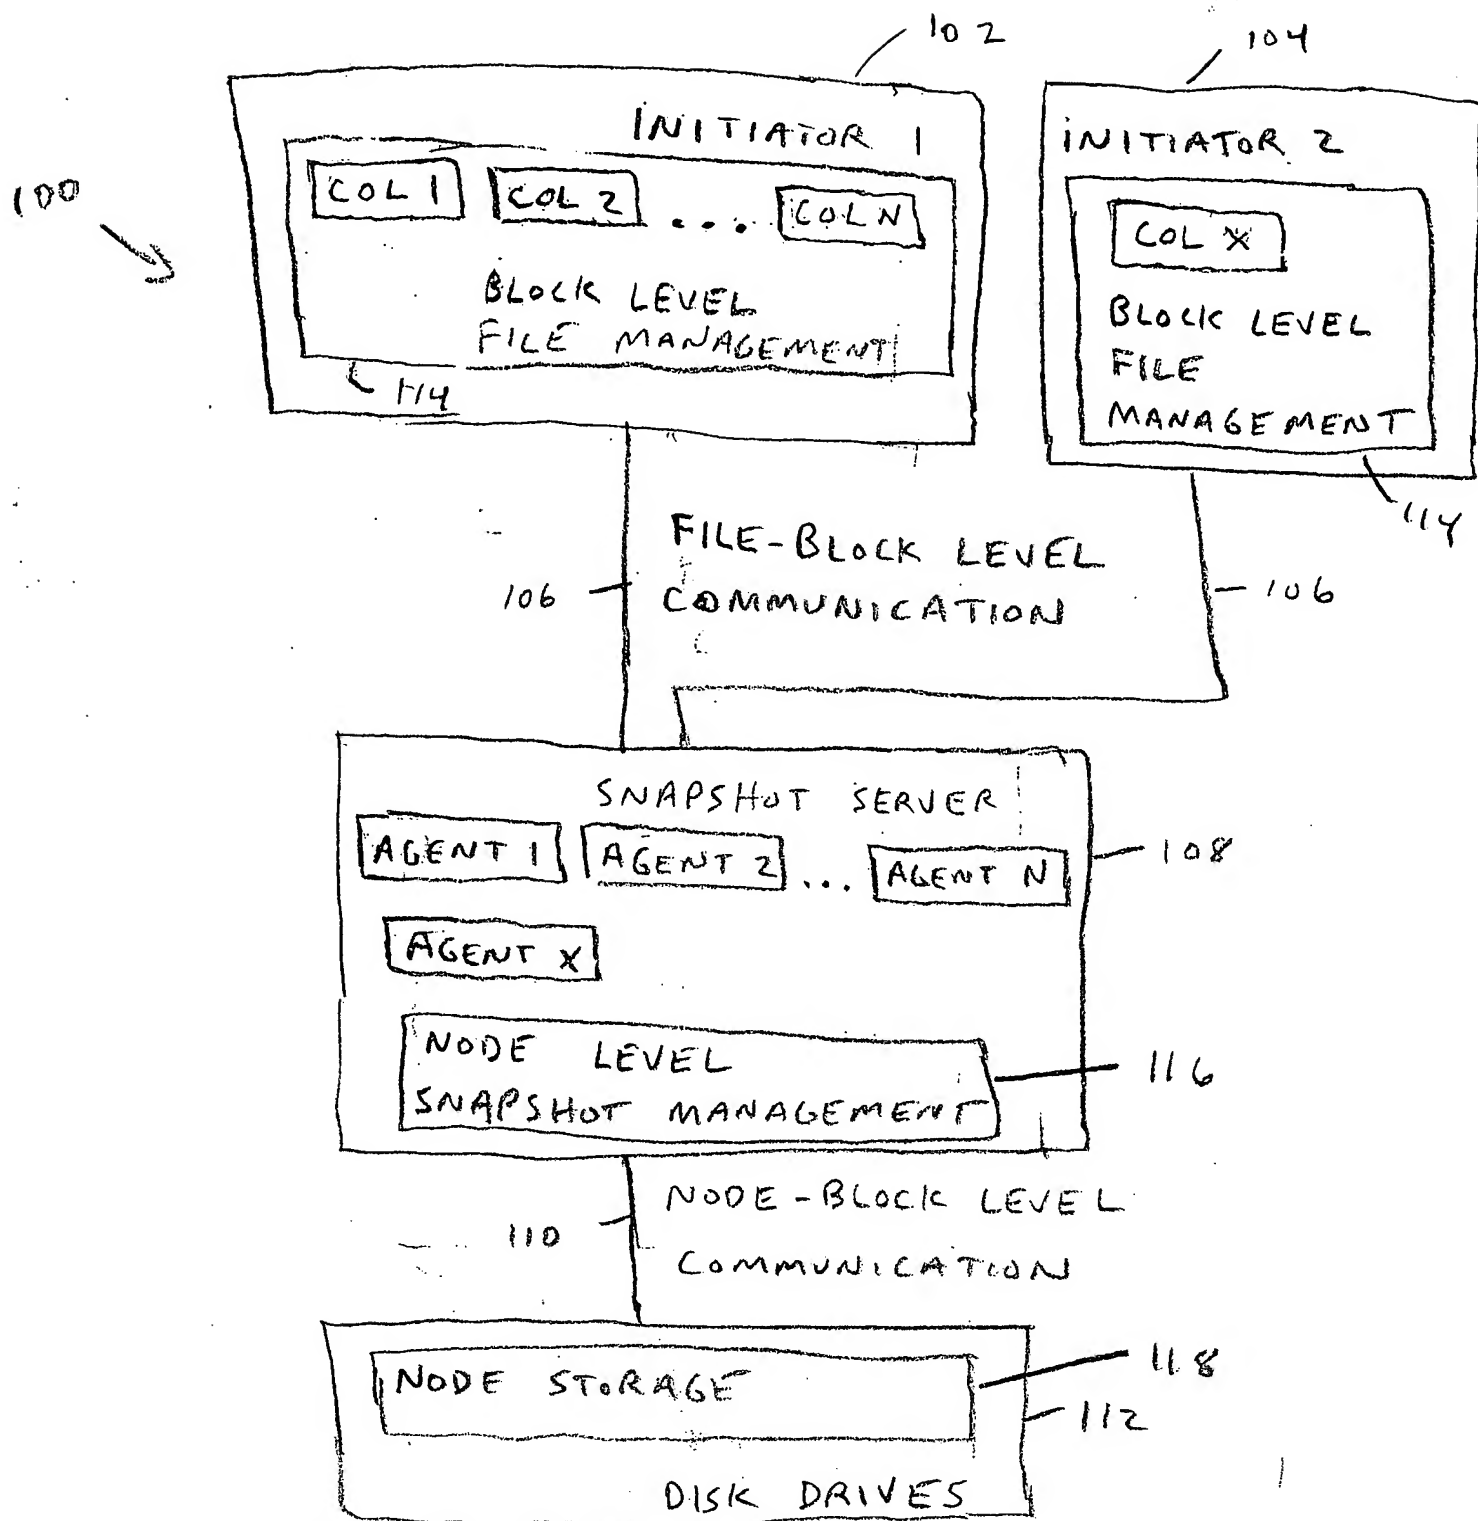 102
104
INITIATOR 1
INITIATOR 2
100
COL 1
COL 2
...
COL N
COL X
BLOCK LEVEL
FILE MANAGEMENT
BLOCK LEVEL
FILE
MANAGEMENT
114
114
FILE-BLOCK LEVEL
COMMUNICATION
106
106
SNAPSHOT SERVER
AGENT 1
AGENT 2
...
AGENT N
108
AGENT X
NODE LEVEL
SNAPSHOT MANAGEMENT
116
NODE-BLOCK LEVEL
COMMUNICATION
110
NODE STORAGE
118
112
DISK DRIVES